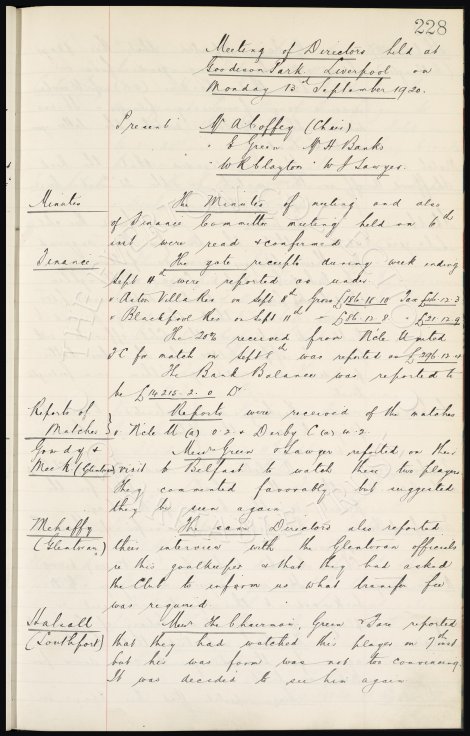 228
Meeting of Directors held at
Goodison Park, Liverpool on
Monday 13th September 1920.
Present Mr A Coffey (Chair)
" E Green Mr H Banks
" W R Clayton " W J Sawyer.
Minutes
The Minutes of meeting and also
of Finance Committee meeting held on 6th
inst were read & confirmed
Finance
The gate receipts during week ending
Sept 11th were reported as under
v Aston Villa Res on Sept 8th Gross £186.18.10 Tax
v Blackpool Res on Sept 11th " £86.12.8 " £21.12.9
The 20% received from Ncle United
FC for match on Sept 8th was reported as
The Bank Balance was reported to
be £14215.2.0 Dr
Reports of
Matches
Reports were received of the matches
v Ncle U (a) 0.2 & Derby C (a) 4.2.
Gowdy &
Mack (Glentoran)
Messrs Green & Sawyer reported on their
visit to Belfast to watch these two players
They commented favorably but suggested
they be seen again
Mehaffy
(Glentoran)
The same Directors also reported
their interview with the Glentoran officials
re this goalkeeper & that they had asked
the Club to inform us what transfer fee
was required.
Halsall
(Southport)
Messrs The Chairman, Green & reported
that they had watched this player on 7th inst
but his was form was not too convincing.
It was decided to see him again